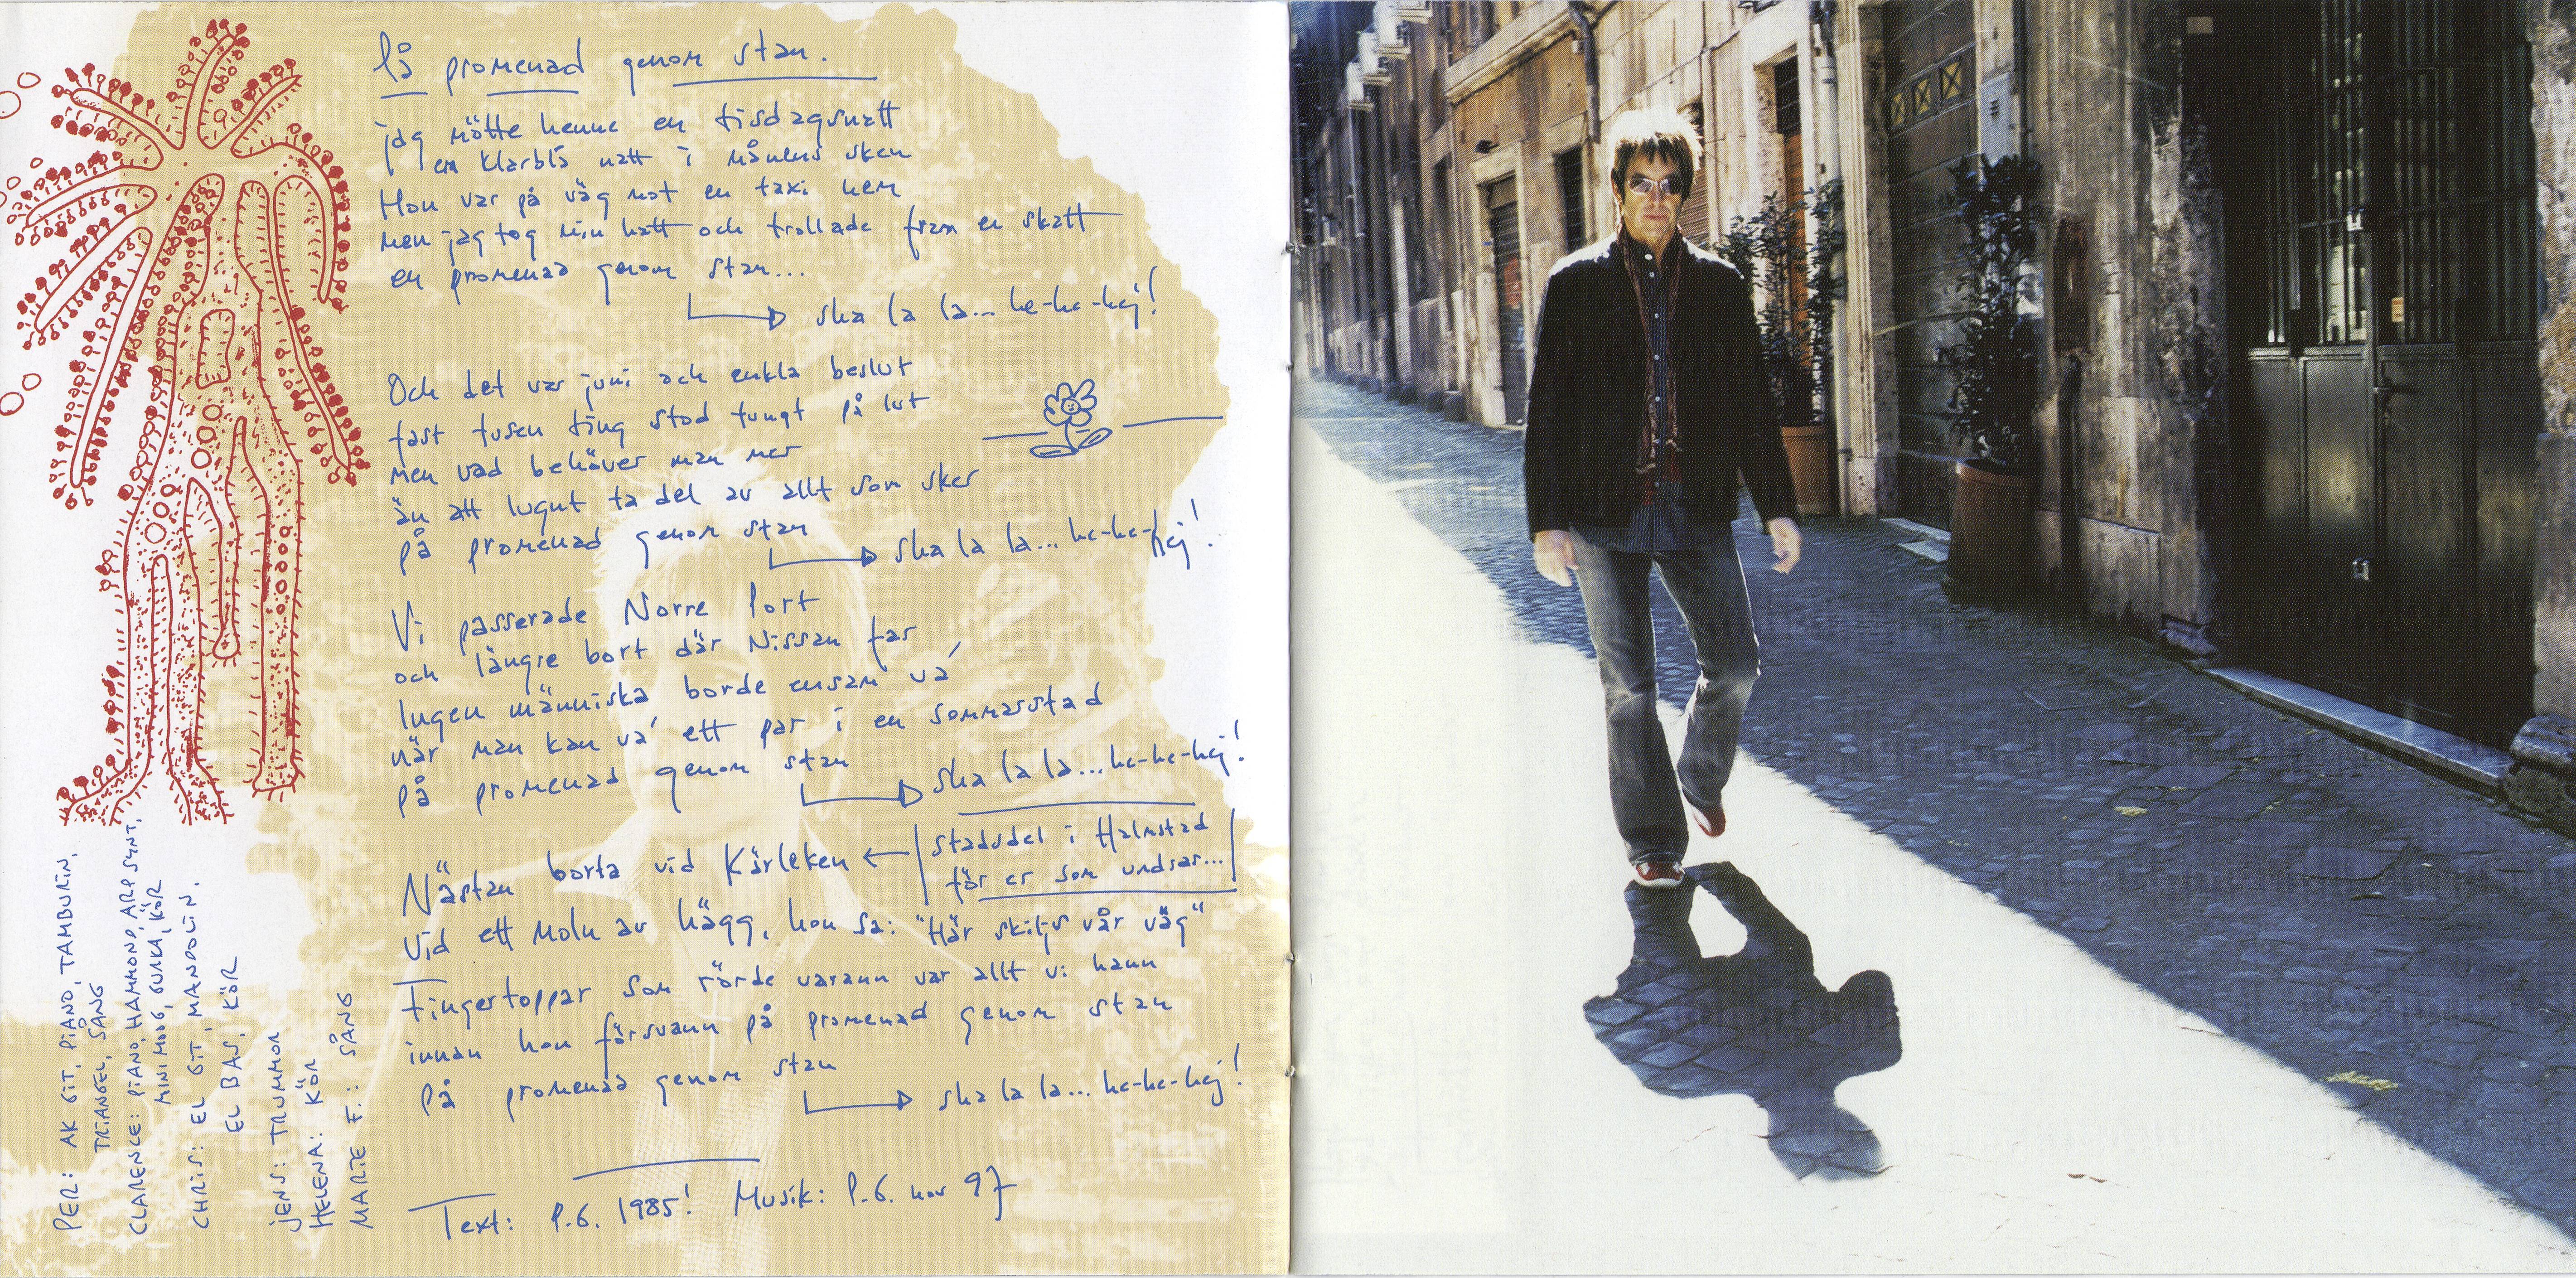 På promenad genom stan.
jag mötte henne en tisdagsnatt
en klarblå natt i månens sken
Hon var på väg mot en taxi hem
men jag tog min hatt och trollade fram en skatt
en promenad genom stan...
sha la la... he-he-hej!
Och det var juni och enkla beslut
fast tusen ting stod tungt på lut
men vad behöver man mer
än att lugnt ta del av allt som sker
på promenad genom stan
sha la la... he-he-hej!
Vi passerade Norre Port
och längre bort där Nissan far
Ingen människa borde ensam va'
när man kan va' ett par i en sommarstad
på promenad genom stan
sha la la... he-he-hej!
Nästan borta vid Kärleken ← stadsdel i Halmstad
för er som undrar...
Vid ett moln av hägg, hon sa: "Här skiljs vår väg"
Fingertoppar som rörde varann var allt vi hann
innan hon försvann på promenad genom stan
På promenad genom stan
sha la la... he-he-hej!
Text: P.G. 1985! Musik: P.G. nov 97
PER: AK GIT, PIANO, TAMBURIN,
TRIANGEL, SÅNG
CLARENCE: PIANO, HAMMOND, ARP SYNT,
MINI MOOG, GURKA, KÖR
CHRIS: EL GIT, MANDOLIN,
EL BAS, KÖR
JENS: TRUMMOR
HELENA: KÖR
MARIE F.: SÅNG